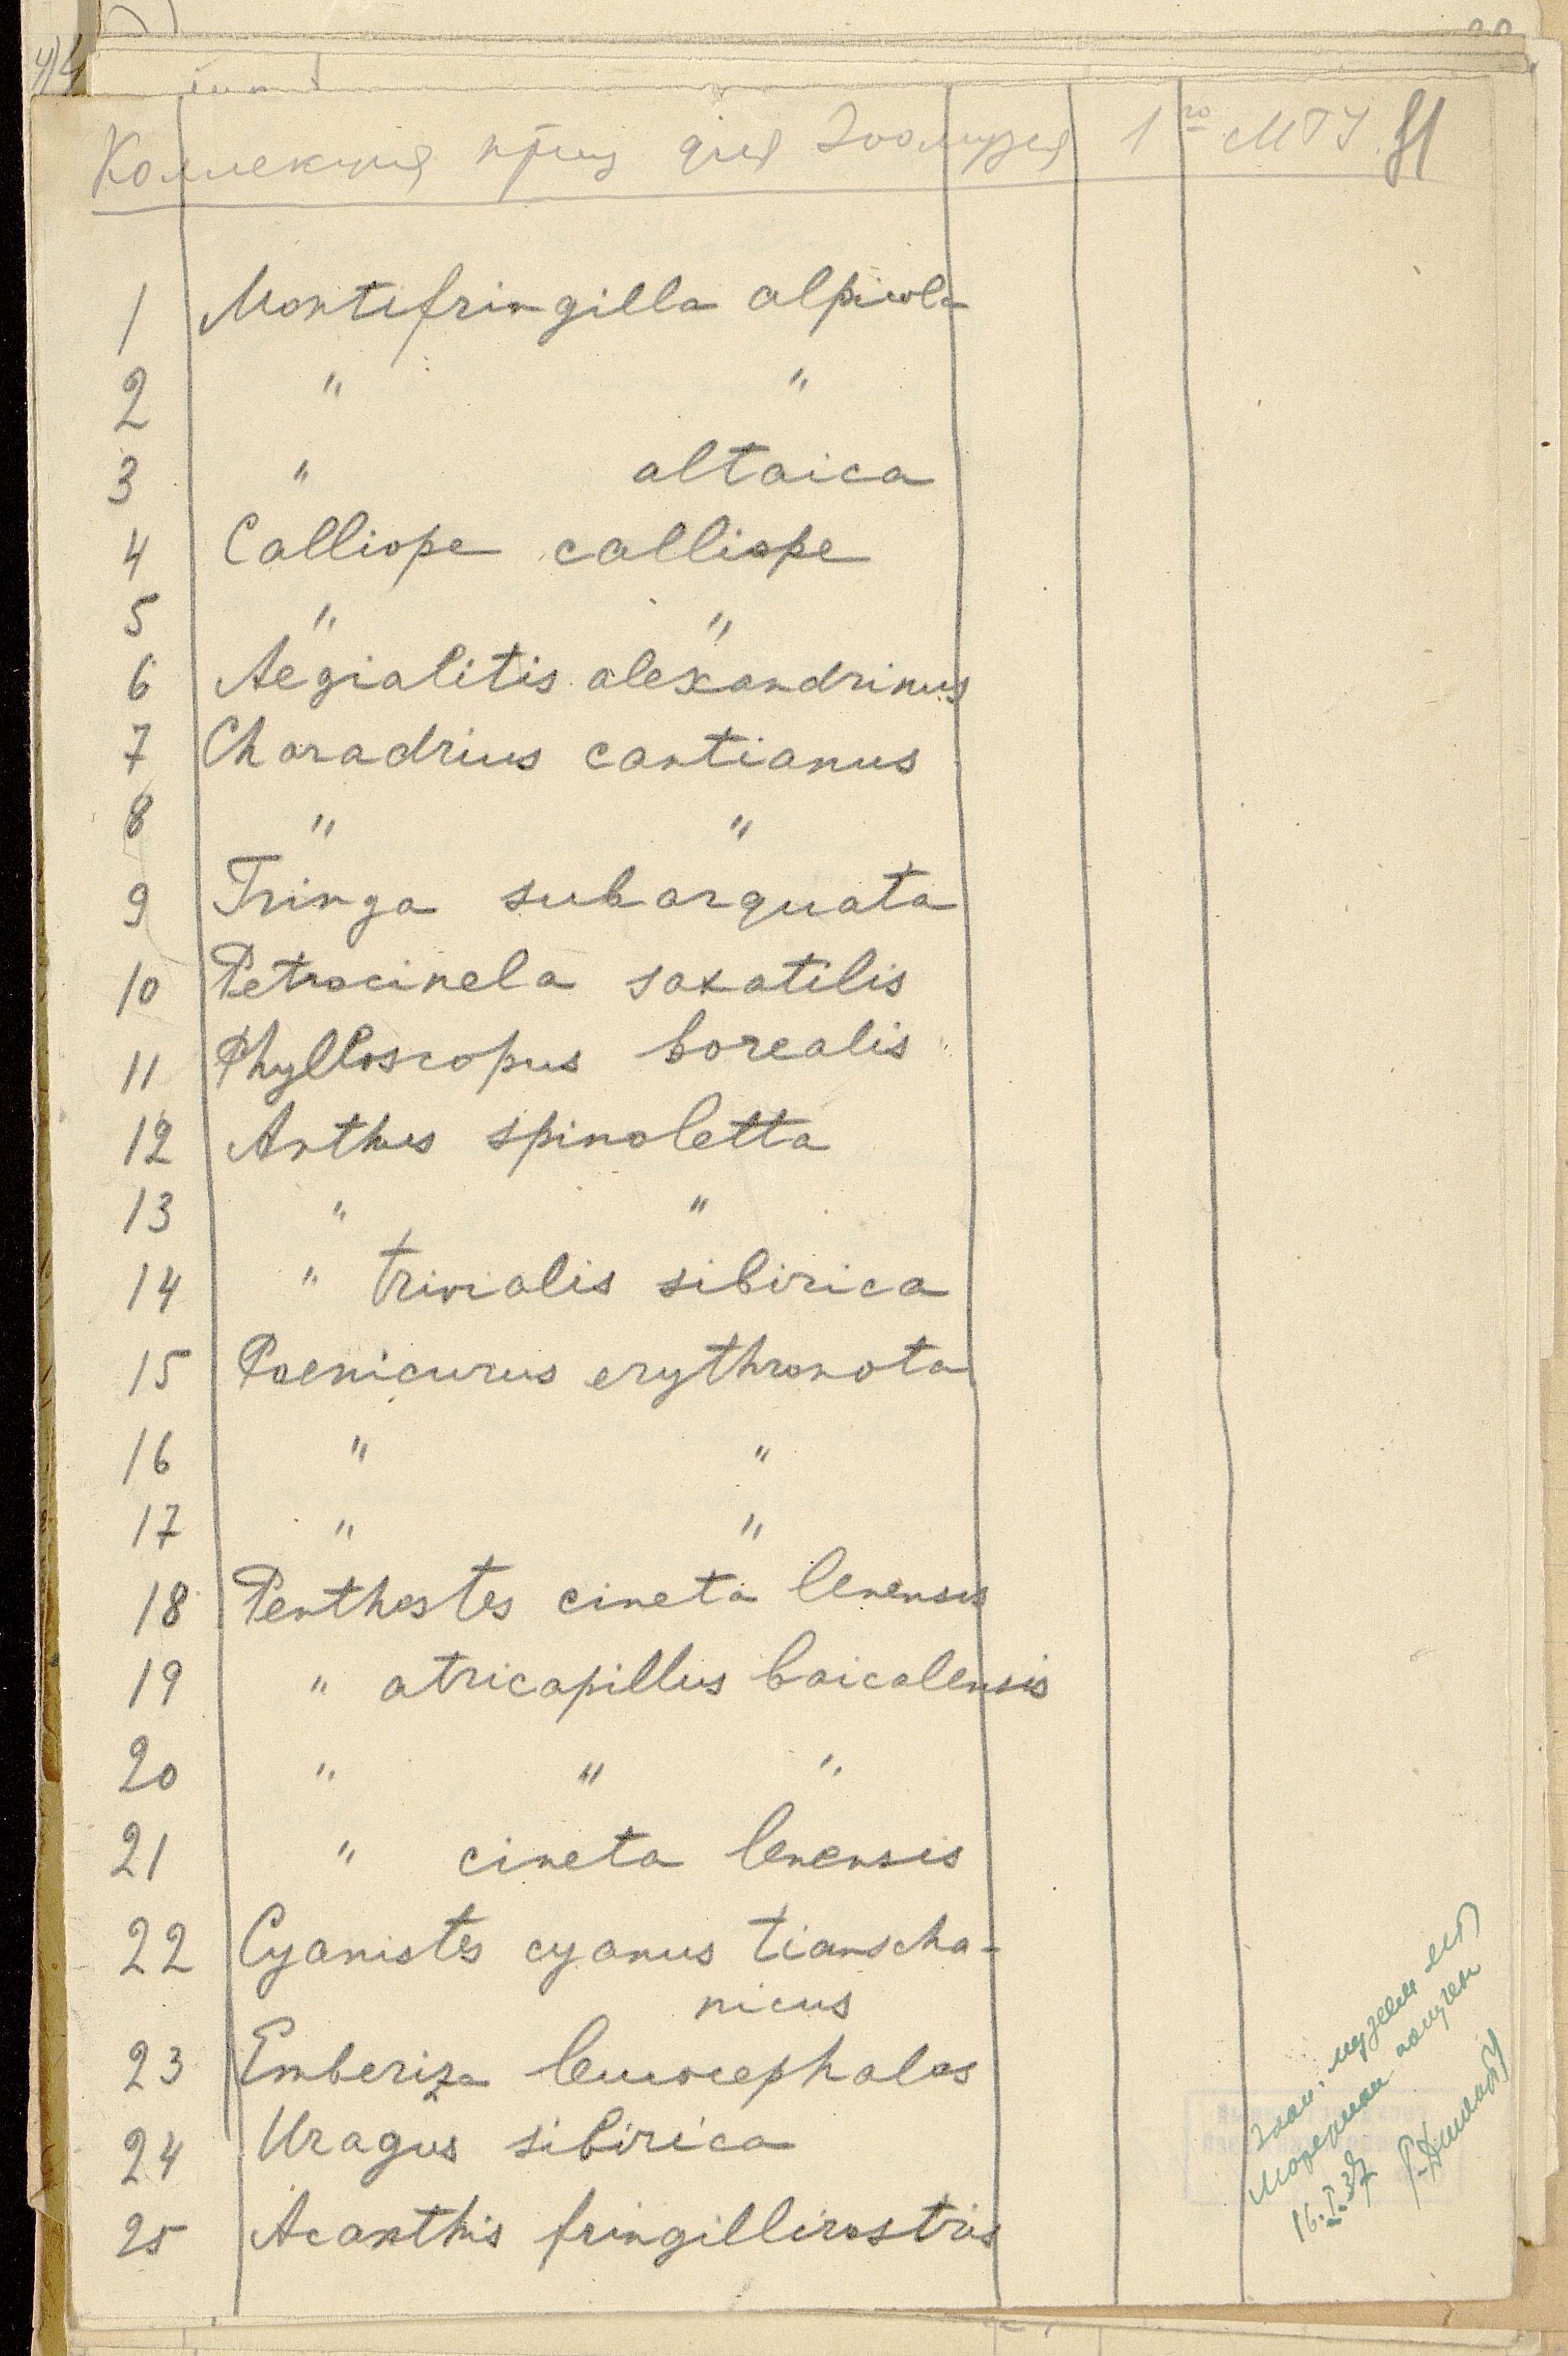 Коллекция птиц для Зоомузея 1го МГУ.
1 Montifringilla alpicola
2 " "
3 " altaica
4 Calliope calliope
5 " "
6 Aegialitis alexandrinus
7 Charadrius cantianus
8 " "
9 Tringa subarquata
10 Petrocinela saxatilis
11 Phylloscopus borealis
12 Anthus spinoletta
13 " "
14 " trivialis sibirica
15 Poenicurus erythronota
16 " "
17 " "
18 Penthestes cineta lenensis
19 " atricapillus baicalensis
20 " " "
21 " cineta lenensis
22 Cyanistes cyanus tianscha-
nicus
23 Emberiza leucocephalos
24 Uragus sibirica
25 Acanthis fringillirostris
Зоол. музеем МГУ
Материал получен
16.I.37